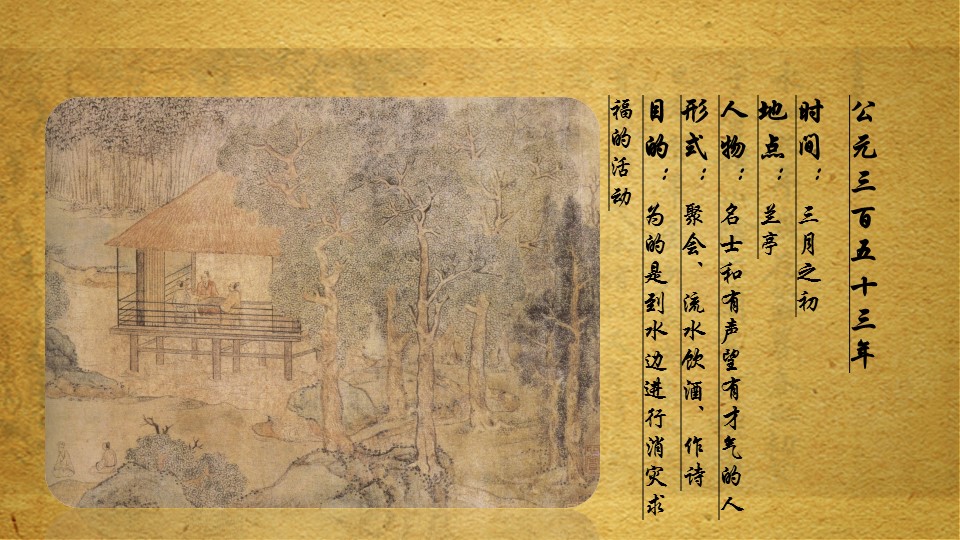 公元三百五十三年
时间：三月之初
地点：兰亭
人物：名士和有声望有才气的人
形式：聚会、流水饮酒、作诗
目的：为的是到水边进行消灾求
福的活动